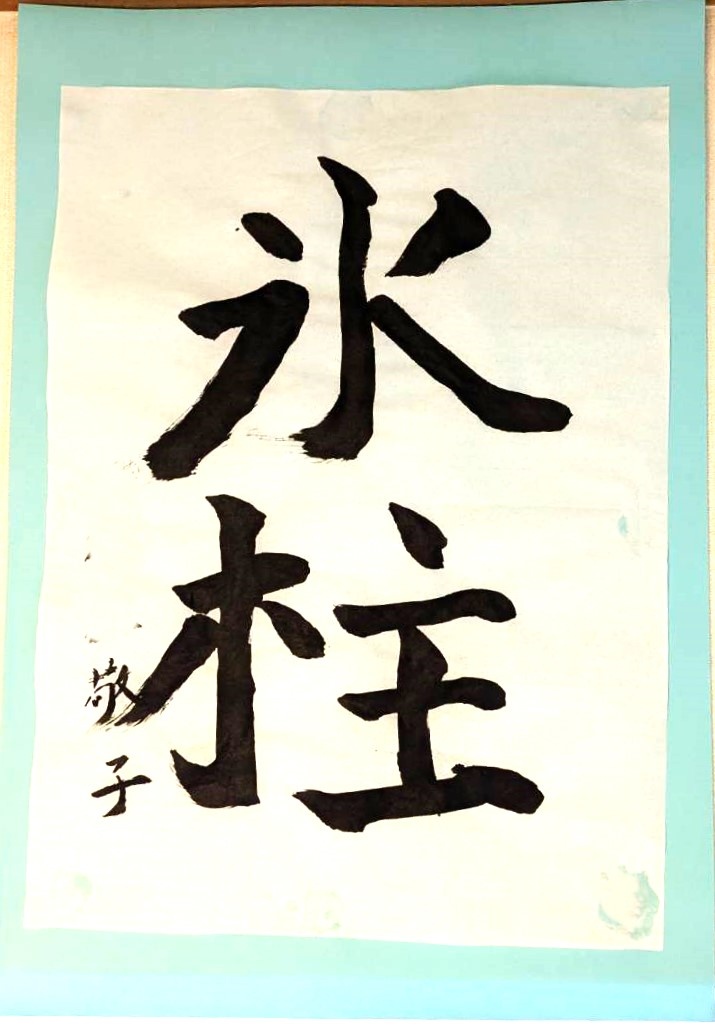 氷柱
敬子